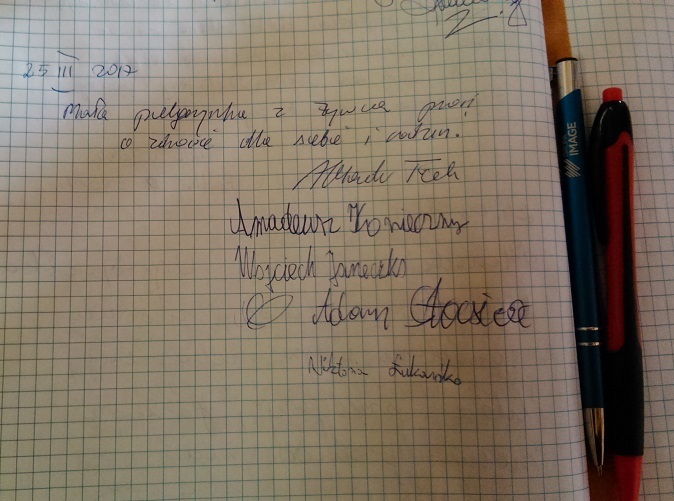 25 III 2017
Mała pielgrzymka z Żywca prosi
o zdrowie dla siebie i rodzin.
Amadeusz Konieczny
Wojciech Janeczko
Adam
Wiktoria
IMAGE